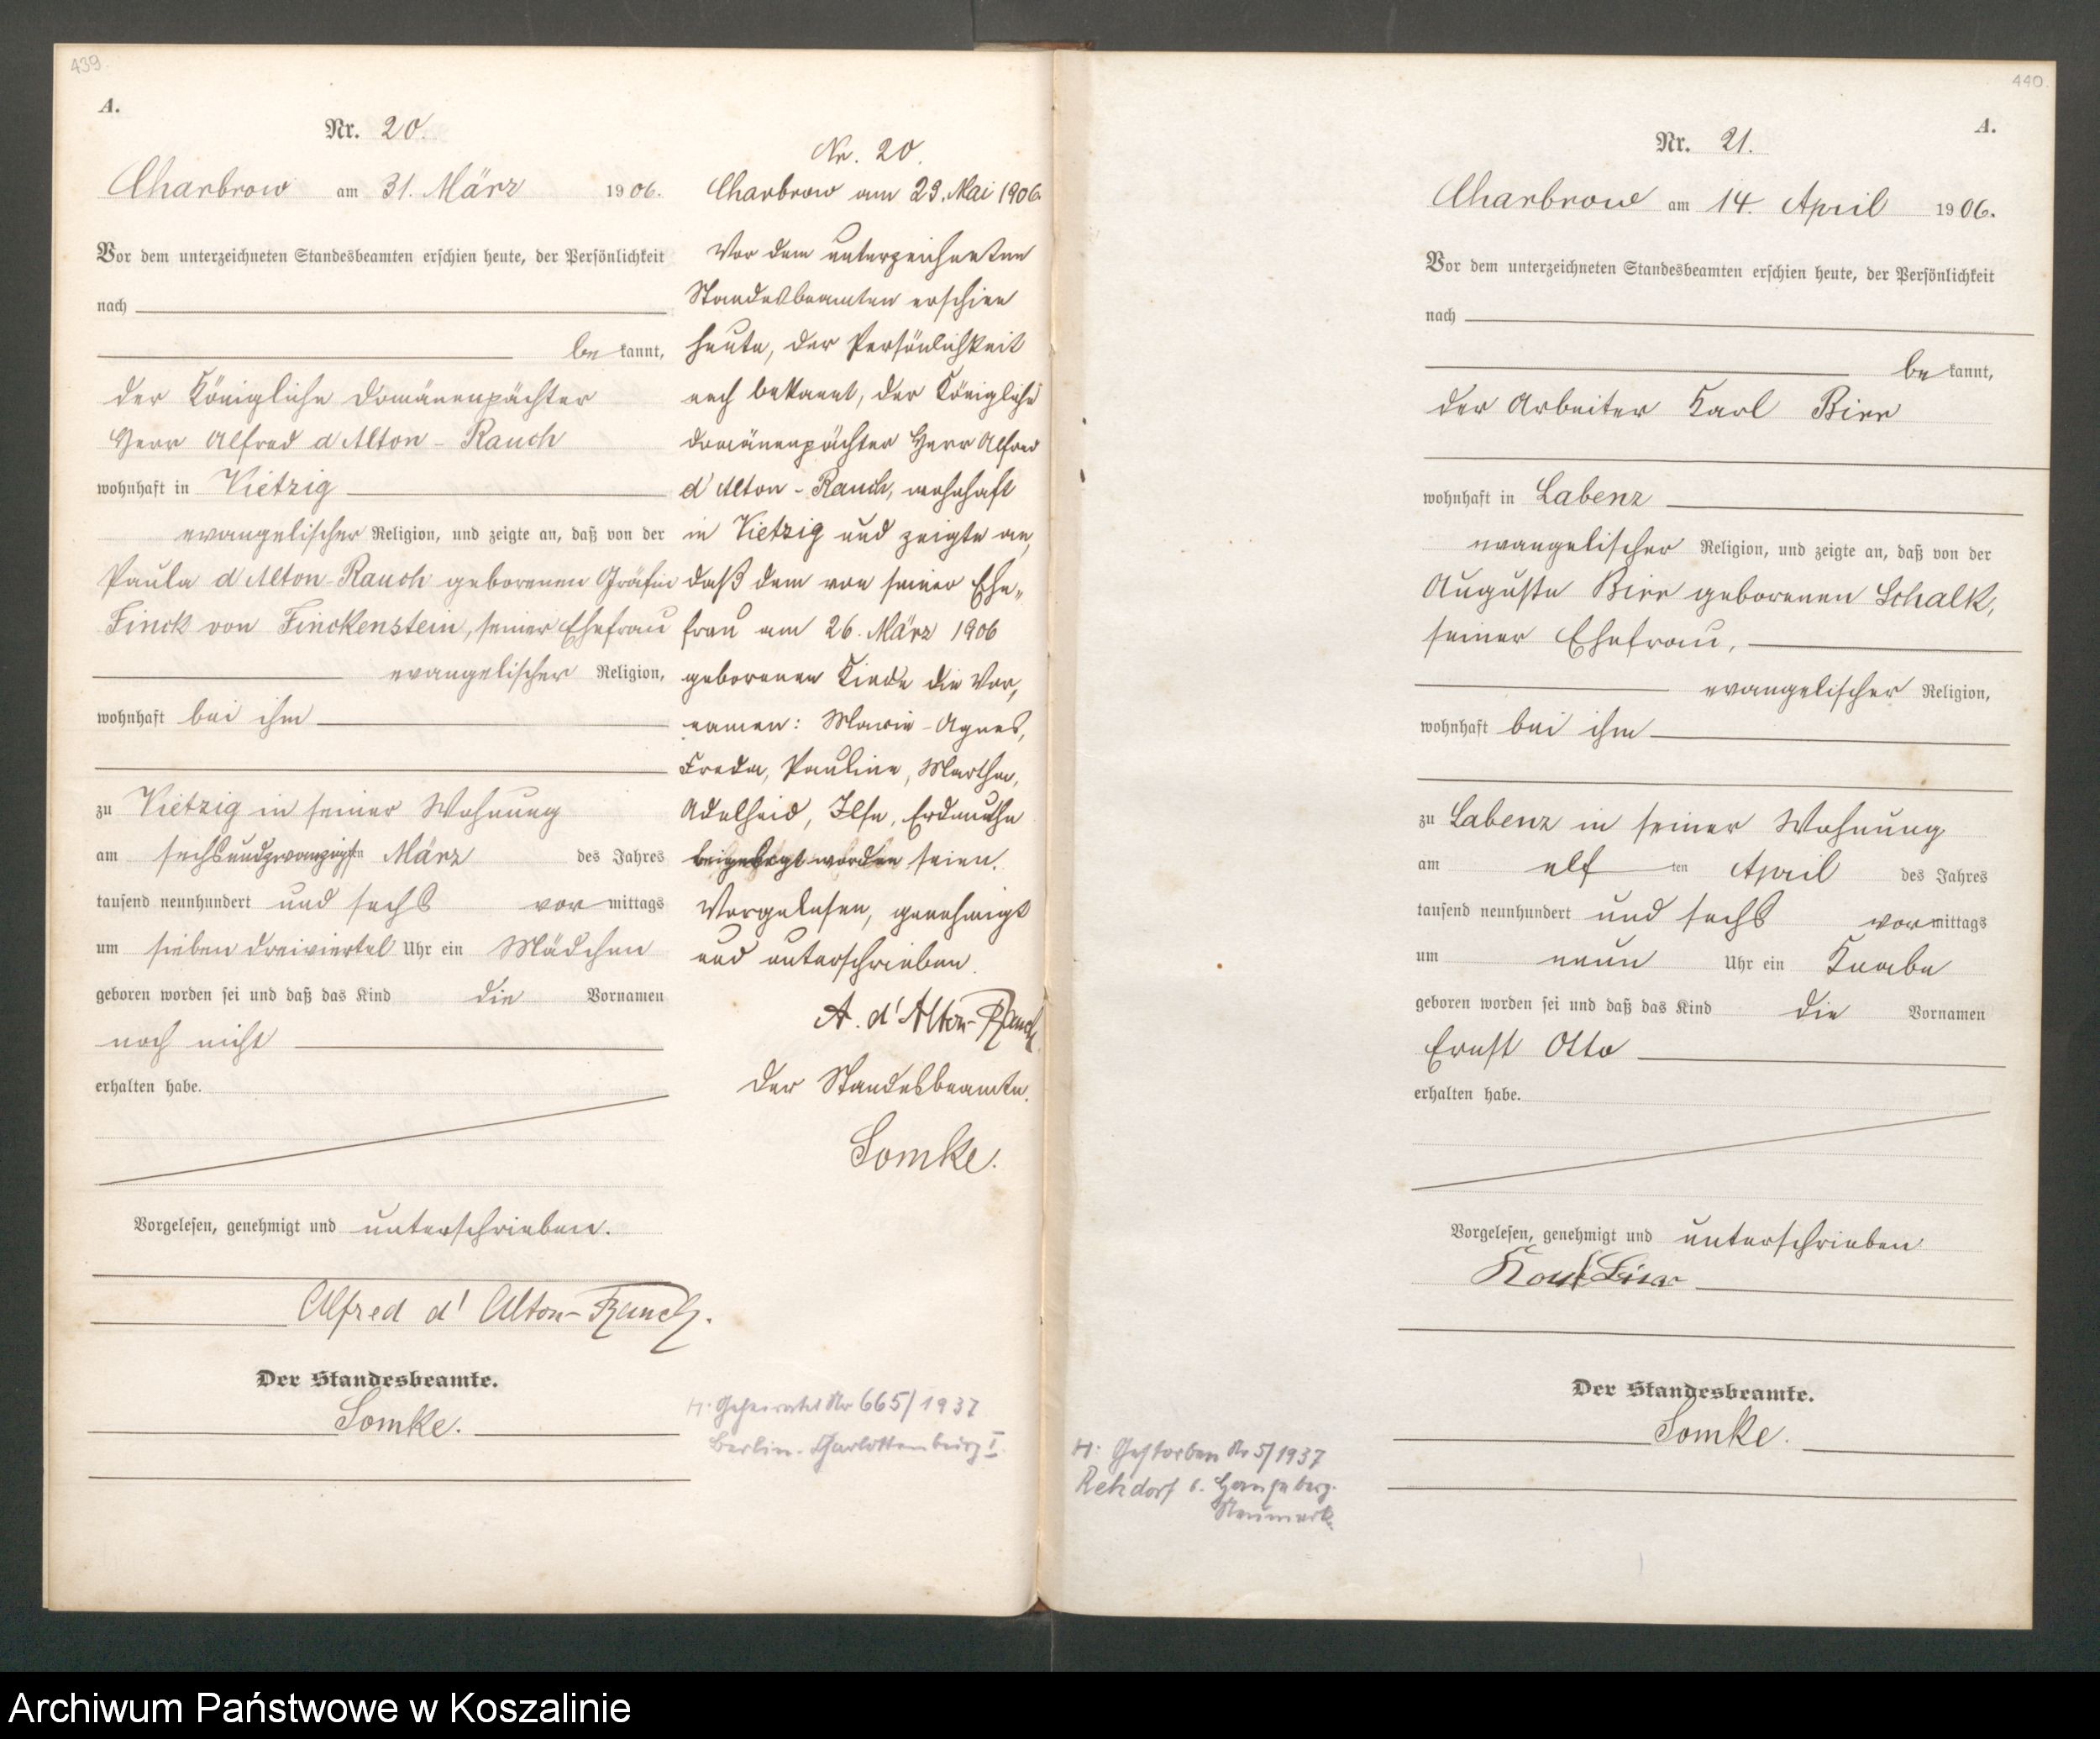 439.
A.
Nr. 20.
Charbrow am 31. März 1906.
Vor dem unterzeichneten Standesbeamten erschien heute, der Persönlichkeit
nach
be kannt,
der Königliche Domänenpächter
Herr Alfred d'Alton-Rauch
wohnhaft in Vietzig
evangelischer Religion, und zeigte an, daß von der
Paula d'Alton-Rauch geborenen Gräfin
Finck von Finckenstein, seiner Ehefrau
evangelischer Religion,
wohnhaft bei ihm
zu Vietzig in seiner Wohnung
am sechsundzwanzigsten März des Jahres
tausend neunhundert und sechs vor mittags
um sieben dreiviertel Uhr ein Mädchen
geboren worden sei und daß das Kind die Vornamen
noch nicht
erhalten habe.
Vorgelesen, genehmigt und unterschrieben.
Alfred d'Alton-Rauch.
Der Standesbeamte.
Lomke.
Nr. 20.
Charbrow am 29. Mai 1906.
Vor dem unterzeichneten
Standesbeamten erschien
heute, der Persönlichkeit
nach bekannt, der Königliche
Domänenpächter Herr Alfred
d'Alton-Rauch, wohnhaft
in Vietzig und zeigte an,
daß dem von seiner Ehe„
frau am 26. März 1906
geborenen Kinde die Vor„
namen: Marie-Agnes,
Freda, Pauline, Martha,
Adelheid, Ilse, Erdmuthe
beigelegt worden seien.
Vorgelesen, genehmigt
und unterschrieben.
A. d'Alton-Rauch.
Der Standesbeamte.
Lomke.
H. Geheiratet Nr 665/1937
Berlin-Charlottenburg I.
440.
A.
Nr. 21.
Charbrow am 14. April 1906.
Vor dem unterzeichneten Standesbeamten erschien heute, der Persönlichkeit
nach
be kannt,
der Arbeiter Karl Birr
wohnhaft in Labenz
evangelischer Religion, und zeigte an, daß von der
Auguste Birr geborenen Schalk,
seiner Ehefrau,
evangelischer Religion,
wohnhaft bei ihm
zu Labenz in seiner Wohnung
am elf ten April des Jahres
tausend neunhundert und sechs vor mittags
um neun Uhr ein Knabe
geboren worden sei und daß das Kind die Vornamen
Ernst Otto
erhalten habe.
Vorgelesen, genehmigt und unterschrieben
Karl Birr
Der Standesbeamte.
Lomke.
H. Gestorben Nr 5/1937
Rehdorf
Neumark.
Archiwum Państwowe w Koszalinie